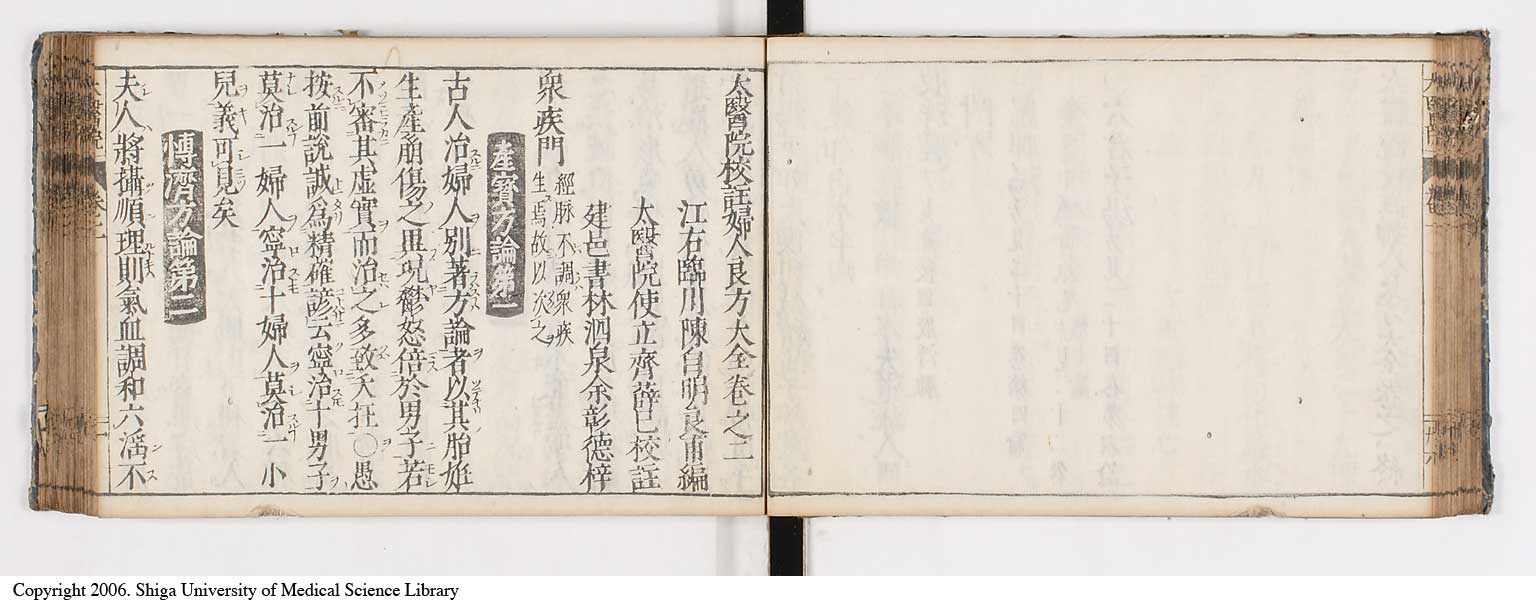 太醫院校註婦人良方大全卷之二
江右臨川陳自明良甫編
太醫院使立齊薛已校註
建邑書林泗泉余彰德梓
衆疾門 經脉不調衆疾
生焉故以次之
產寶方論第一
古人治婦人別著方論者以其胎姙
生產崩傷之異况鬱怒倍於男子若
不審其虚實而治之多致夭枉〇愚
按前說誠爲精確諺云寧治十男子
莫治一婦人寧治十婦人莫治一小
兒義可見矣
博濟方論第二
夫人將攝順理則氣血調和六滛不
Copyright 2006. Shiga University of Medical Science Library